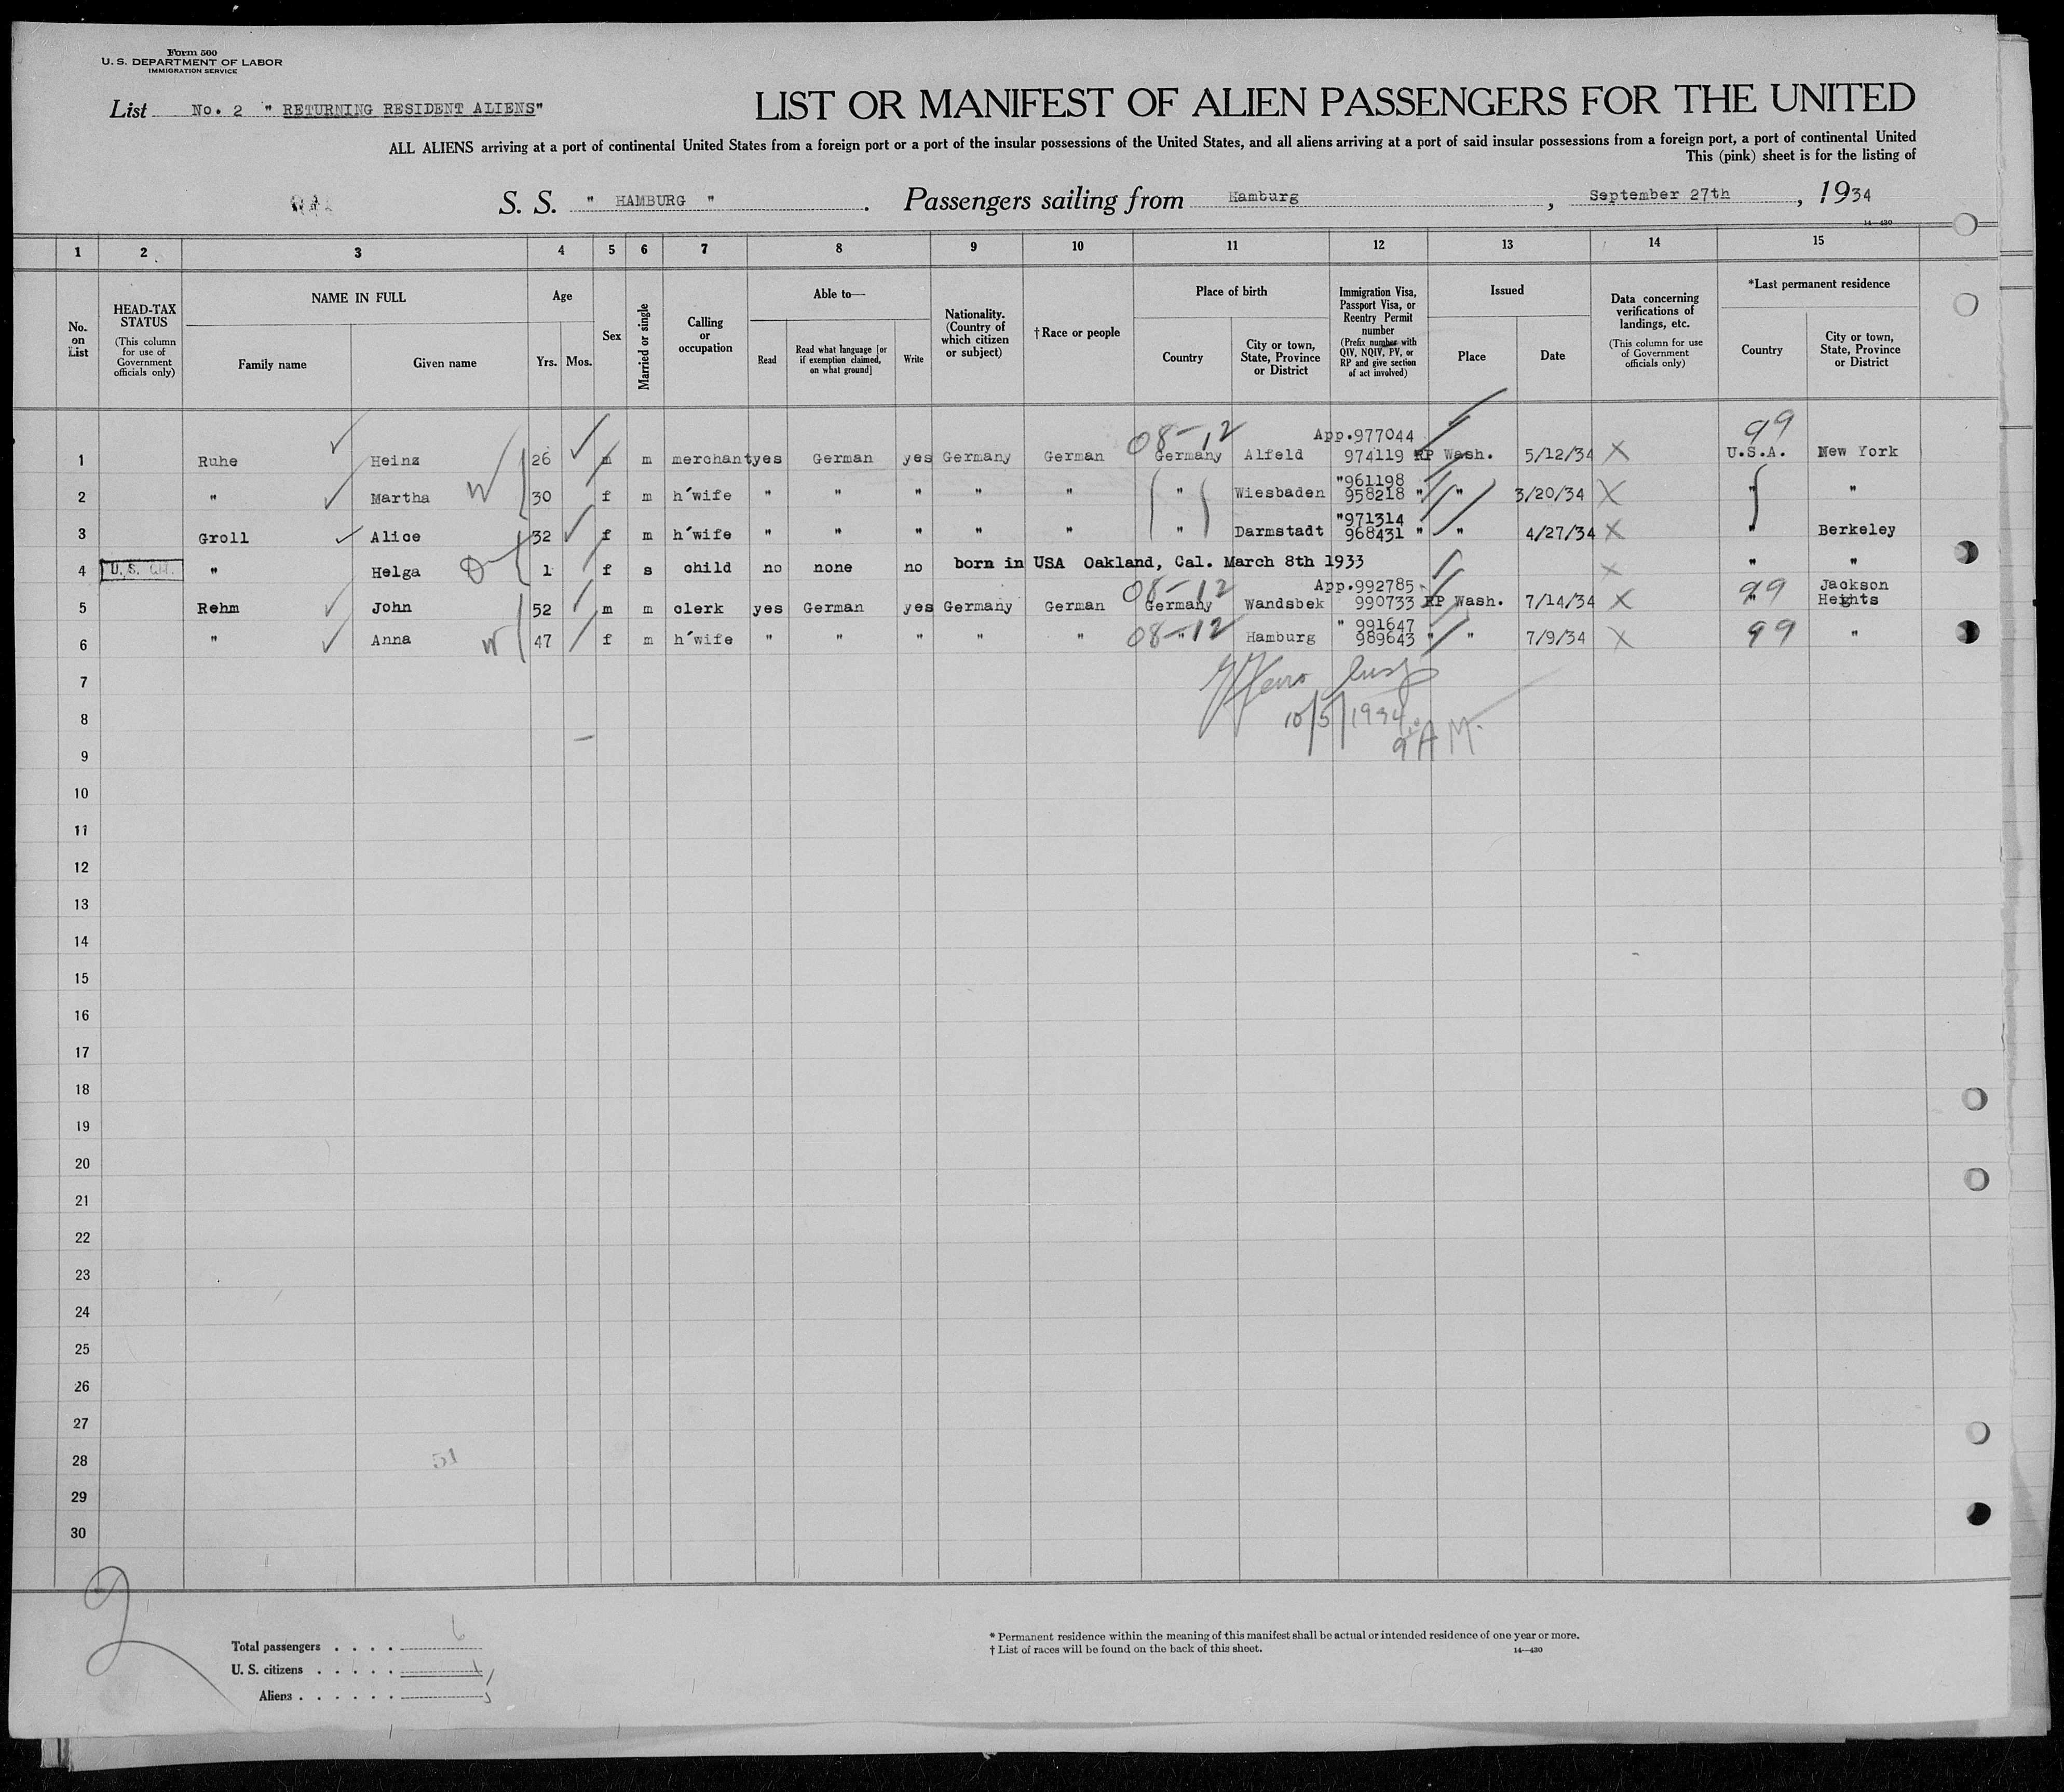 Form 500
U. S. DEPARTMENT OF LABOR
IMMIGRATION SERVICE
List No. 2 " RETURNING RESIDENT ALIENS"
LIST OR MANIFEST OF ALIEN PASSENGERS FOR THE UNITED
ALL ALIENS arriving at a port of continental United States from a foreign port or a port of the insular possessions of the United States, and all aliens arriving at a port of said insular possessions from a foreign port, a port of continental United
This (pink) sheet is for the listing of
S. S. " HAMBURG " . Passengers sailing from Hamburg , September 27th , 1934
14—430
1 2 3 4 5 6 7 8 9 10 11 12 13 14 15
No. on List
HEAD-TAX STATUS (This column for use of Government officials only)
NAME IN FULL
Family name Given name
Age
Yrs. Mos.
Sex
Married or single
Calling or occupation
Able to—
Read Read what language [or if exemption claimed, on what ground] Write
Nationality. (Country of which citizen or subject)
†Race or people
Place of birth
Country City or town, State, Province or District
Immigration Visa, Passport Visa, or Reentry Permit number (Prefix number with QIV, NQIV, PV, or RP and give section of act involved)
Issued
Place Date
Data concerning verifications of landings, etc. (This column for use of Government officials only)
*Last permanent residence
Country City or town, State, Province or District
08-12 App.977044 99
1 Ruhe Heinz 26 m m merchant yes German yes Germany German Germany Alfeld 974119 RP Wash. 5/12/34 X U.S.A. New York
"961198
2 " Martha W 30 f m h'wife " " " " " " Wiesbaden 958218 " " 3/20/34 X " "
"971314
3 Groll Alice 32 f m h'wife " " " " " " Darmstadt 968431 " " 4/27/34 X " Berkeley
4 U. S. Cit. " Helga 1 f s child no none no born in USA Oakland, Cal. March 8th 1933 X " "
08-12 App.992785 Jackson
5 Rehm John 52 m m clerk yes German yes Germany German Germany Wandsbek 990733 RP Wash. 7/14/34 X 99 " Heights
" 991647
6 " Anna W 47 f m h'wife " " " " " 08-12 " Hamburg 989643 " " 7/9/34 X 99 "
7
10/5/1934
8
9 A M.
9
10
11
12
13
14
15
16
17
18
19
20
21
22
23
24
25
26
27
28 51
29
30
2
Total passengers . . . . 6
U. S. citizens . . . . . 1
Aliens . . . . . . 5
* Permanent residence within the meaning of this manifest shall be actual or intended residence of one year or more.
† List of races will be found on the back of this sheet. 14—430